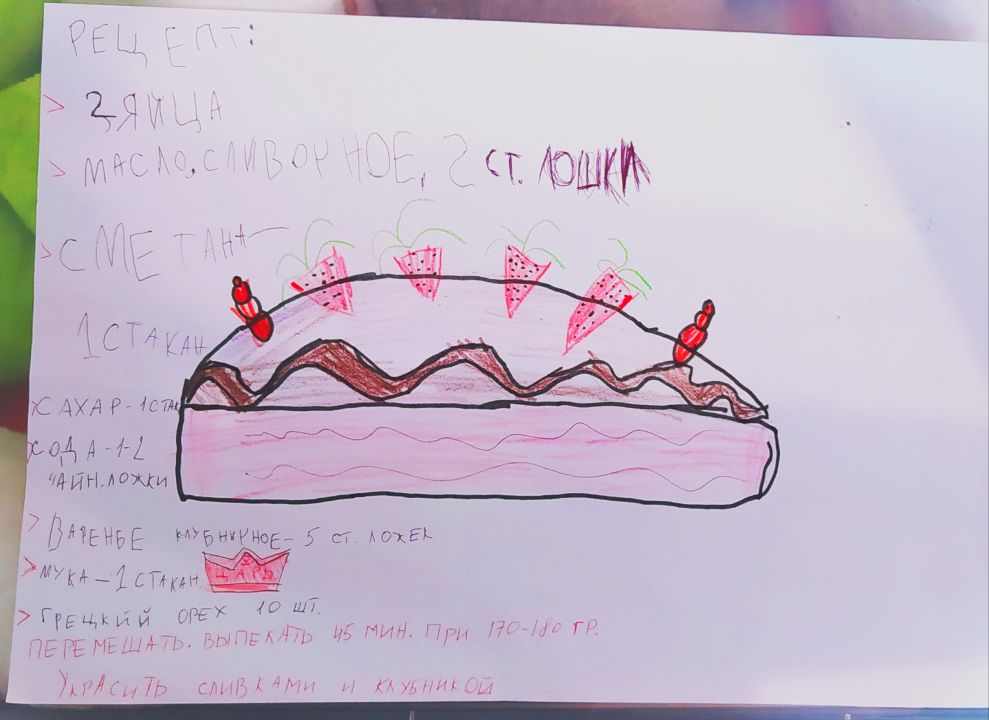 РЕЦЕПТ:
> 3 ЯЙЦА
> МАСЛО СЛИВОЧНОЕ, 2 СТ. ЛОШКИ
> СМЕТАНА -
1 СТАКАН
САХАР - 1 СТАК
СОДА - 1-2
ЧАЙН. ЛОЖКИ
> ВАРЕНЬЕ КЛУБНИЧНОЕ - 5 СТ. ЛОЖЕК
> МУКА - 1 СТАКАН
ЦАРЬ
> ГРЕЦКИЙ ОРЕХ 10 ШТ.
ПЕРЕМЕШАТЬ. ВЫПЕКАТЬ 45 МИН. ПРИ 170-180 ГР.
УКРАСИТЬ СЛИВКАМИ И КЛУБНИКОЙ